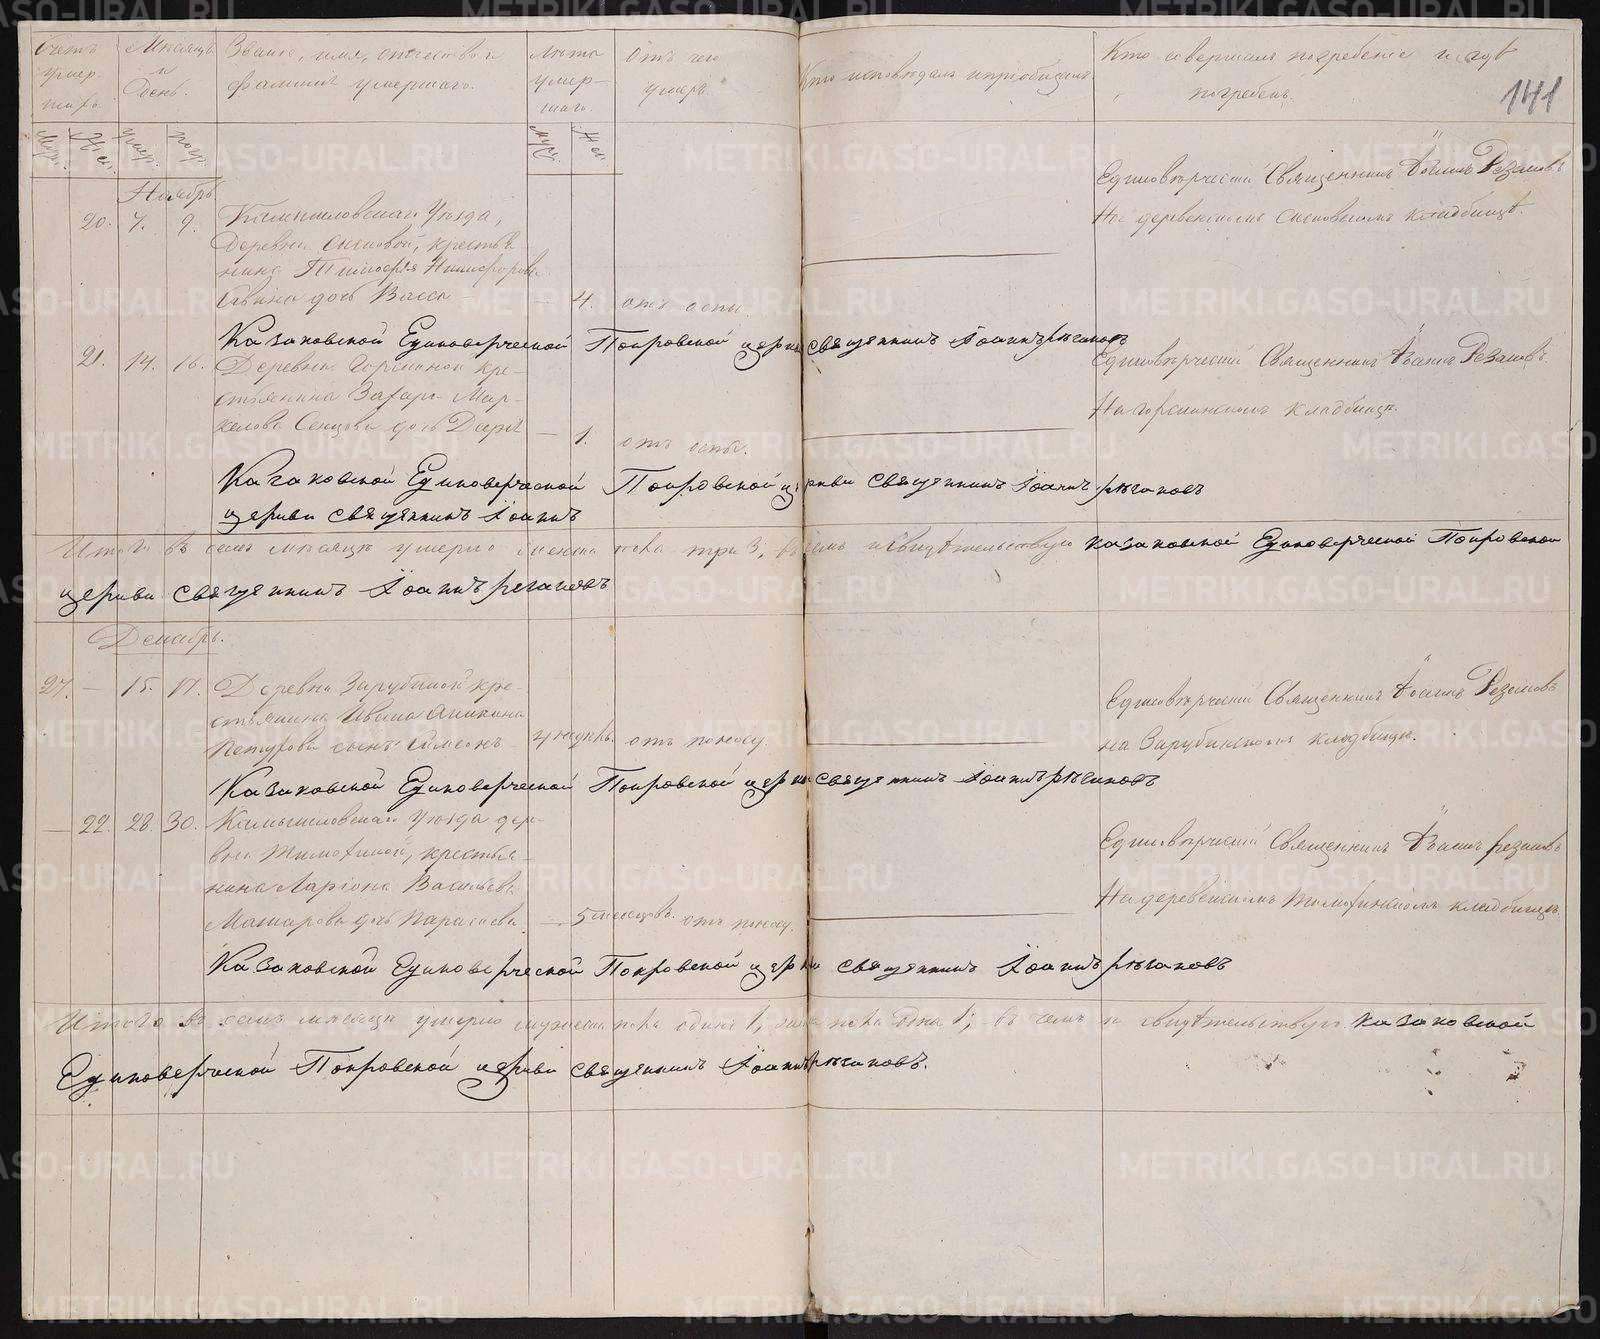 Счетъ умер-шихъ.
Мѣсяцъ и день.
Званіе, имя, отчество и фамилія умершаго.
Лѣта умер-шаго.
Отъ чего умеръ.
Кто исповѣдалъ и пріобщалъ.
Кто совершалъ погребеніе и гдѣ погребенъ.
141
Муж. Жен. умер. погр. Муж. Жен.
Ноябрь
20. 7. 9. Камышловскаго Уѣзда,
Деревни, крестья-
нина Тимофея Никифорова
дочь Васса — 4. отъ оспы.
Единовѣрческій Священникъ Іоаннъ Резановъ
На деревенскомъ кладбищѣ.
Казаковской Единоверческой Покровской церкви священникъ Іоаннъ Рѣзановъ
21. 14. 16. Деревни кре-
стьянина Захара Мар-
келова дочь Дарья — 1. отъ оспы.
Единовѣрческій Священникъ Іоаннъ Резановъ
На кладбищѣ.
Казаковской Единоверческой Покровской церкви священникъ Іоаннъ Рѣзановъ
церкви священникъ Іоаннъ
Итого въ семъ мѣсяцѣ умерло женска пола три 3, въ чемъ и свидѣтельствую Казаковской Единоверческой Покровской
церкви священникъ Іоаннъ Резановъ
Декабрь.
27. — 15. 17. Деревни Зарубиной кре-
стьянина Ивана Аникина
сынъ Симеонъ 4 недѣль. отъ поносу.
Единовѣрческій Священникъ Іоаннъ Резановъ
на Зарубинскомъ кладбищѣ.
Казаковской Единоверческой Покровской церкви священникъ Іоаннъ Рѣзановъ
— 22. 28. 30. Камышловскаго Уѣзда дер-
вни Тимохиной, крестья-
нина Ларіона Васильева
дочь Параскева. — 5 месецовъ. отъ поносу.
Единовѣрческій Священникъ Іоаннъ Резановъ
На деревенскомъ Тимохинскомъ кладбищѣ.
Казаковской Единоверческой Покровской церкви священникъ Іоаннъ Рѣзановъ
Итого въ семъ мѣсяцѣ умерло мужеска пола одинъ 1, женска пола одна 1; въ чемъ и свидѣтельствую Казаковской
Единоверческой Покровской церкви священникъ Іоаннъ Рѣзановъ.
METRIKI.GASO-URAL.RU